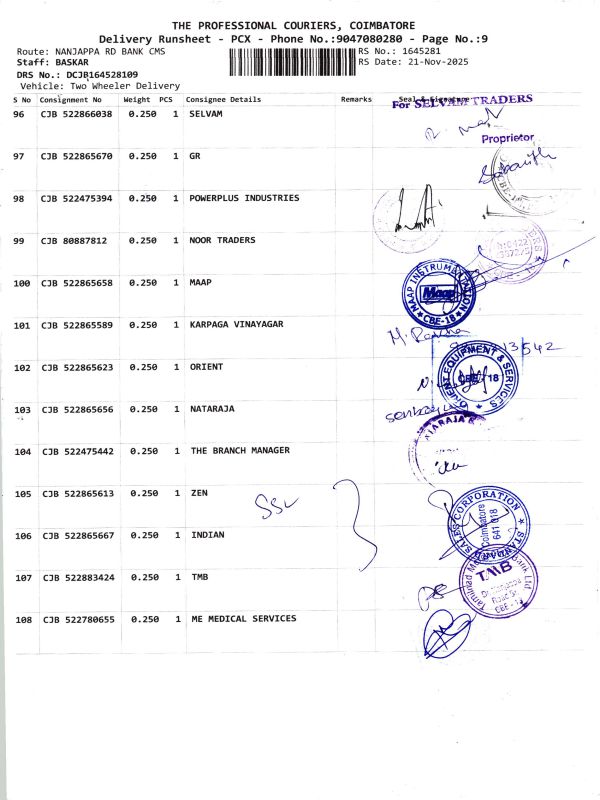 THE PROFESSIONAL COURIERS, COIMBATORE
Delivery Runsheet - PCX - Phone No.:9047080280 - Page No.:9
Route: NANJAPPA RD BANK CMS
RS No.: 1645281
Staff: BASKAR
RS Date: 21-Nov-2025
DRS No.: DCJB164528109
Vehicle: Two Wheeler Delivery
S No Consignment No Weight PCS Consignee Details Remarks Seal & Signature
For SELVAM TRADERS
96 CJB 522866038 0.250 1 SELVAM
Proprietor
97 CJB 522865670 0.250 1 GR
98 CJB 522475394 0.250 1 POWERPLUS INDUSTRIES
99 CJB 80887812 0.250 1 NOOR TRADERS
100 CJB 522865658 0.250 1 MAAP
MAAP INSTRUMENTATION
Maap
CBE-18
101 CJB 522865589 0.250 1 KARPAGA VINAYAGAR
102 CJB 522865623 0.250 1 ORIENT
ORIENT EQUIPMENT & SERVICES
CBE - 18
103 CJB 522865656 0.250 1 NATARAJA
104 CJB 522475442 0.250 1 THE BRANCH MANAGER
105 CJB 522865613 0.250 1 ZEN
SALES CORPORATION
Coimbatore
641 018
106 CJB 522865667 0.250 1 INDIAN
107 CJB 522883424 0.250 1 TMB
TMB
108 CJB 522780655 0.250 1 ME MEDICAL SERVICES